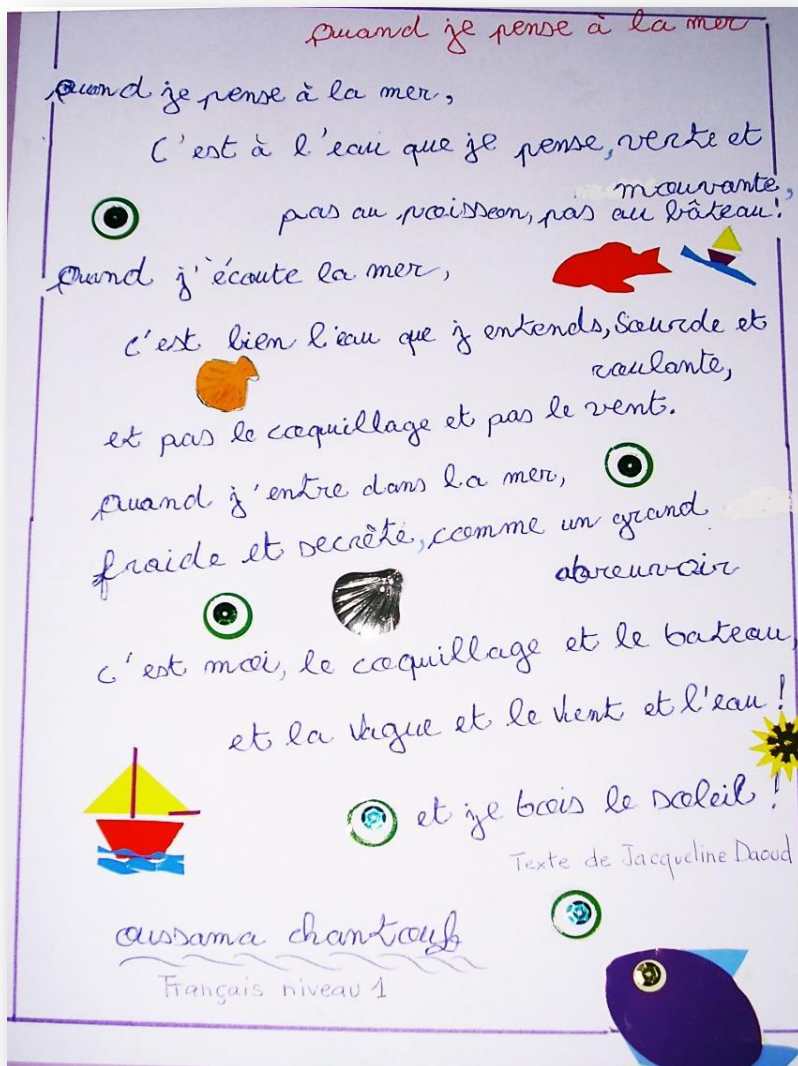 Quand je pense à la mer
Quand je pense à la mer,
C'est à l'eau que je pense, verte et
mouvante,
pas au poisson, pas au bâteau!
Quand j'écoute la mer,
c'est bien l'eau que j entends, Sourde et
roulante,
et pas le coquillage et pas le vent.
Quand j'entre dans la mer,
froide et secrète, comme un grand
abreuvoir
c'est moi, le coquillage et le bateau,
et la Vague et le Vient et l'eau!
et je bois le soleil!
Texte de Jacqueline Daoud
oussama chantouf
Français niveau 1